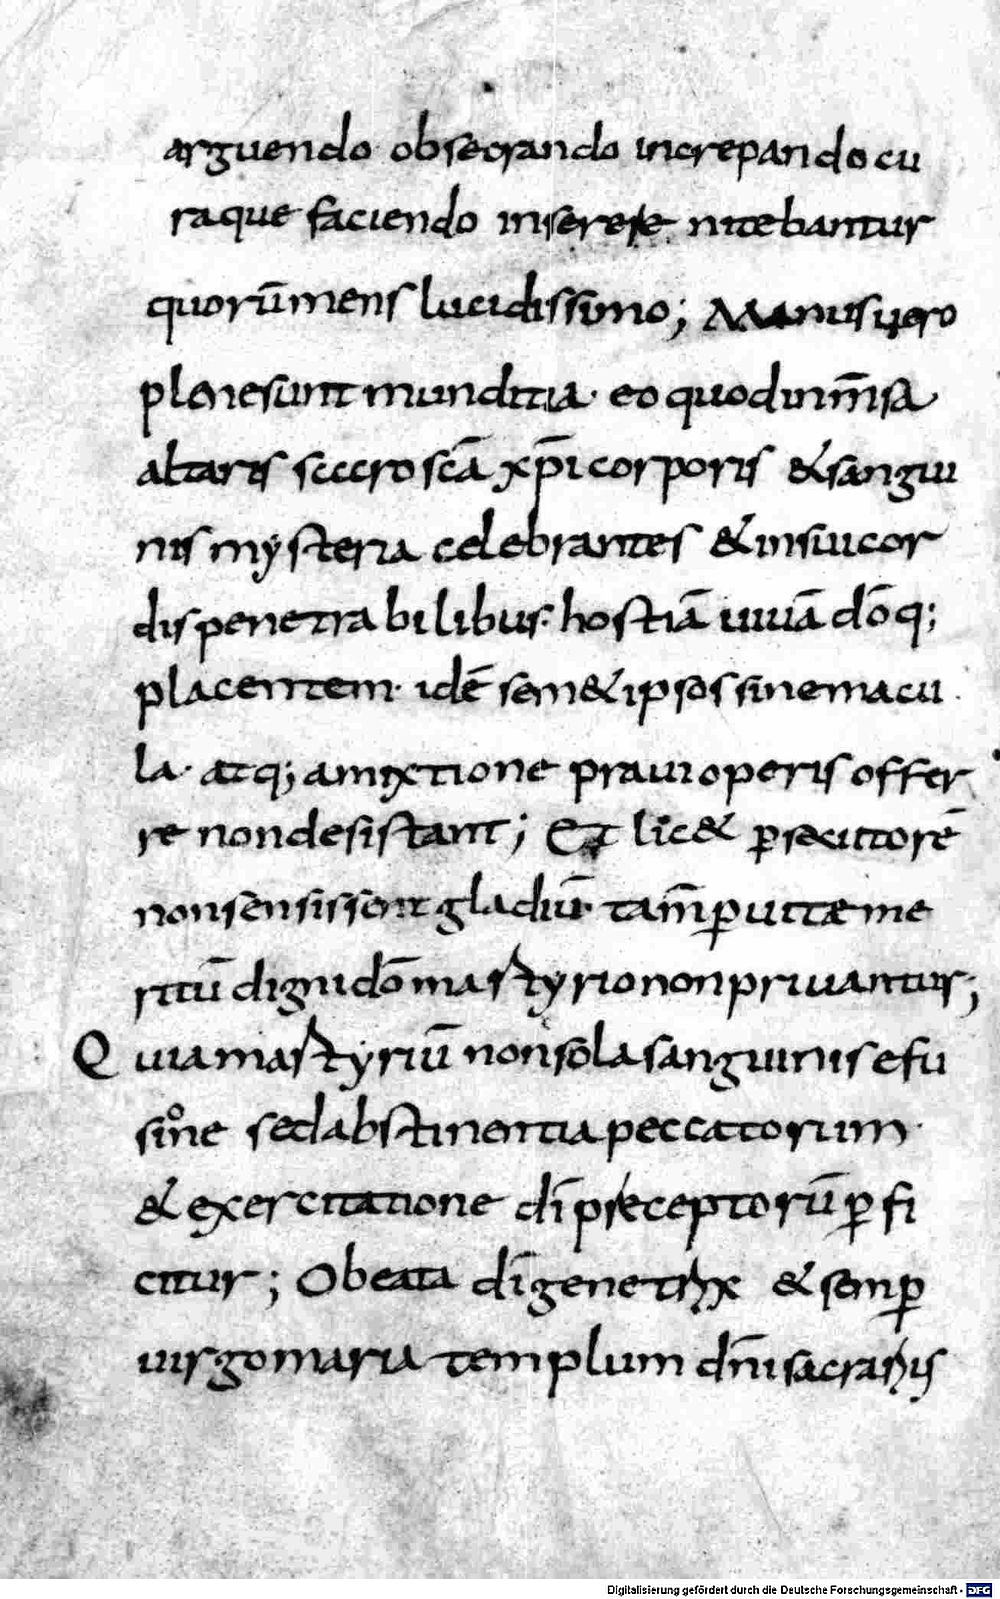 arguendo obsecrando increpando cu
raque faciendo inserere nitebantur
quorūmens lucidissimo; Manus uero
plenesunt munditia· eo quodinm̄sa
altaris sacro scā xp̄i corporis &sangui
nis mysteria celebrantes &insuicor
dispenetrabilibus· hostiā uiuā dōq;
placentem· idē sem&ipsossinemacu
la· atq; amixtione prauioperis offer
re nondesistant; Et lic& p̱secutorē
nonsensissent gladiū· tam̄p̱uitae me
ritū dignidōmartyriononpriuantur;
Quiamartyriū nonsolasanguinisefu
sione sedabstinentiapeccatorum·
& exercitatione dīpreceptorūp̱fi
citur; Obeata dīgenetrix &semp̱
uirgomaria templum dn̄isacrariis
Digitalisierung gefördert durch die Deutsche Forschungsgemeinschaft - DFG